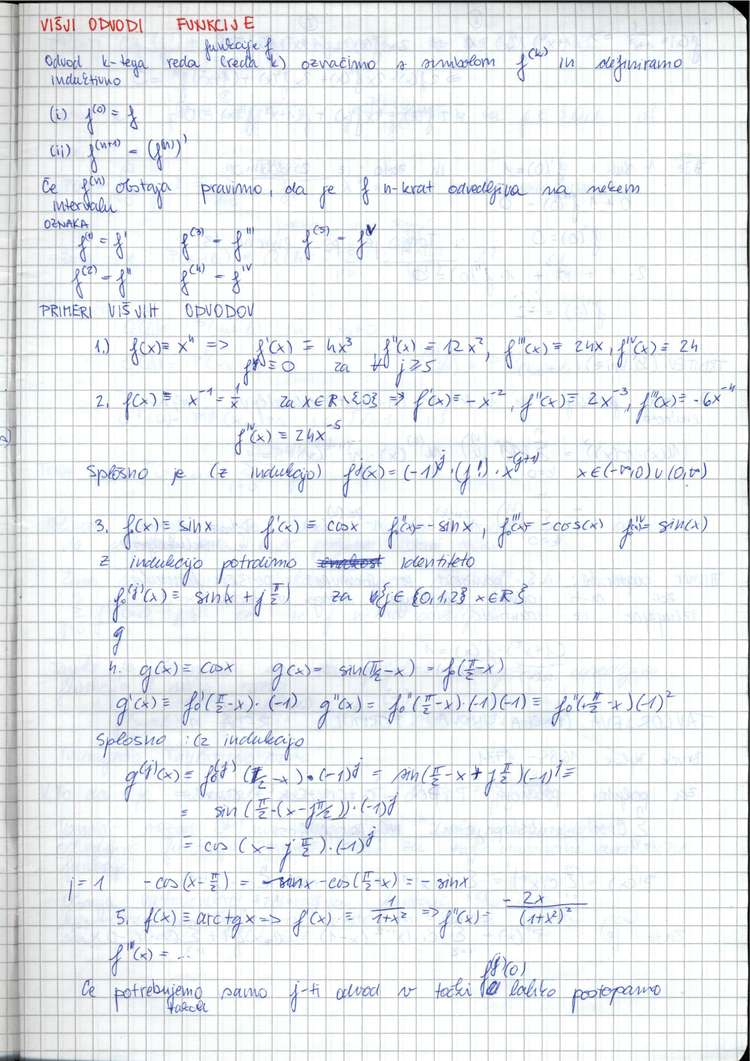 VIŠJI ODVODI FUNKCIJE
funkcije f
Odvod k-tega reda (reda k) označimo s simbolom f^(k) in definiramo
induktivno
(i) f^(0) = f
(ii) f^(n+1) = (f^(n))'
Če f^(n) obstaja pravimo, da je f n-krat odvedljiva na nekem
intervalu
OZNAKA
f^(1) = f' f^(3) = f''' f^(5) = f^V
f^(2) = f'' f^(4) = f^IV
PRIMERI VIŠJIH ODVODOV
1.) f(x) = x^4 => f'(x) = 4x^3 f''(x) = 12x^2, f'''(x) = 24x, f^IV(x) = 24
f^j ≡ 0 za ∀ j ≥ 5
2. f(x) = x^-1 = 1/x za x∈R\{0} => f'(x) = -x^-2, f''(x) = 2x^-3, f'''(x) = -6x^-4
f^IV(x) = 24x^-5
Splošno je (z indukcijo) f^j(x) = (-1)^j · (j!) · x^-(j+1) x∈(-∞,0)∪(0,∞)
3. f₀(x) = sinx f₀'(x) = cosx f₀''(x) = -sinx, f₀'''(x) = -cos(x) f₀^IV = sin(x)
z indukcijo potrdimo identiteto
f₀^(j)(x) = sin(x + j π/2) za ∀{j∈{0,1,2} x∈R}
g
4. g(x) = cosx g(x) = sin(π/2 - x) = f₀(π/2 - x)
g'(x) = f₀'(π/2 - x) · (-1) g''(x) = f₀''(π/2 - x) · (-1)(-1) = f₀''(π/2 - x)(-1)^2
Splošno : (z indukcijo
g^(j)(x) = f₀^(j) (π/2 - x) · (-1)^j = sin(π/2 - x + j π/2)(-1)^j =
= sin (π/2 - (x - j π/2)) · (-1)^j
= cos (x - j π/2) · (-1)^j
j = 1 -cos(x - π/2) = -sinx -cos(π/2 - x) = -sinx
5. f(x) = arctgx => f'(x) = 1/(1+x^2) => f''(x) = -2x/(1+x^2)^2
f'''(x) = ...
f^j(0)
Če potrebujemo samo j-ti odvod v točki 0 lahko postopamo
takole